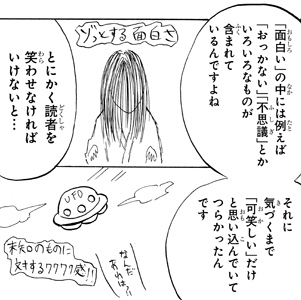 「面白い」の中には例えば
「おっかない」「不思議」とか
いろいろなものが
含まれて
いるんですよね
ゾッとする面白さ
とにかく読者を
笑わせなければ
いけないと…
それに
気づくまで
「可笑しい」だけ
と思い込んでいて
つらかったん
です
UFO
なんだ
あれは!!
未知のものに
対するワクワク感!!